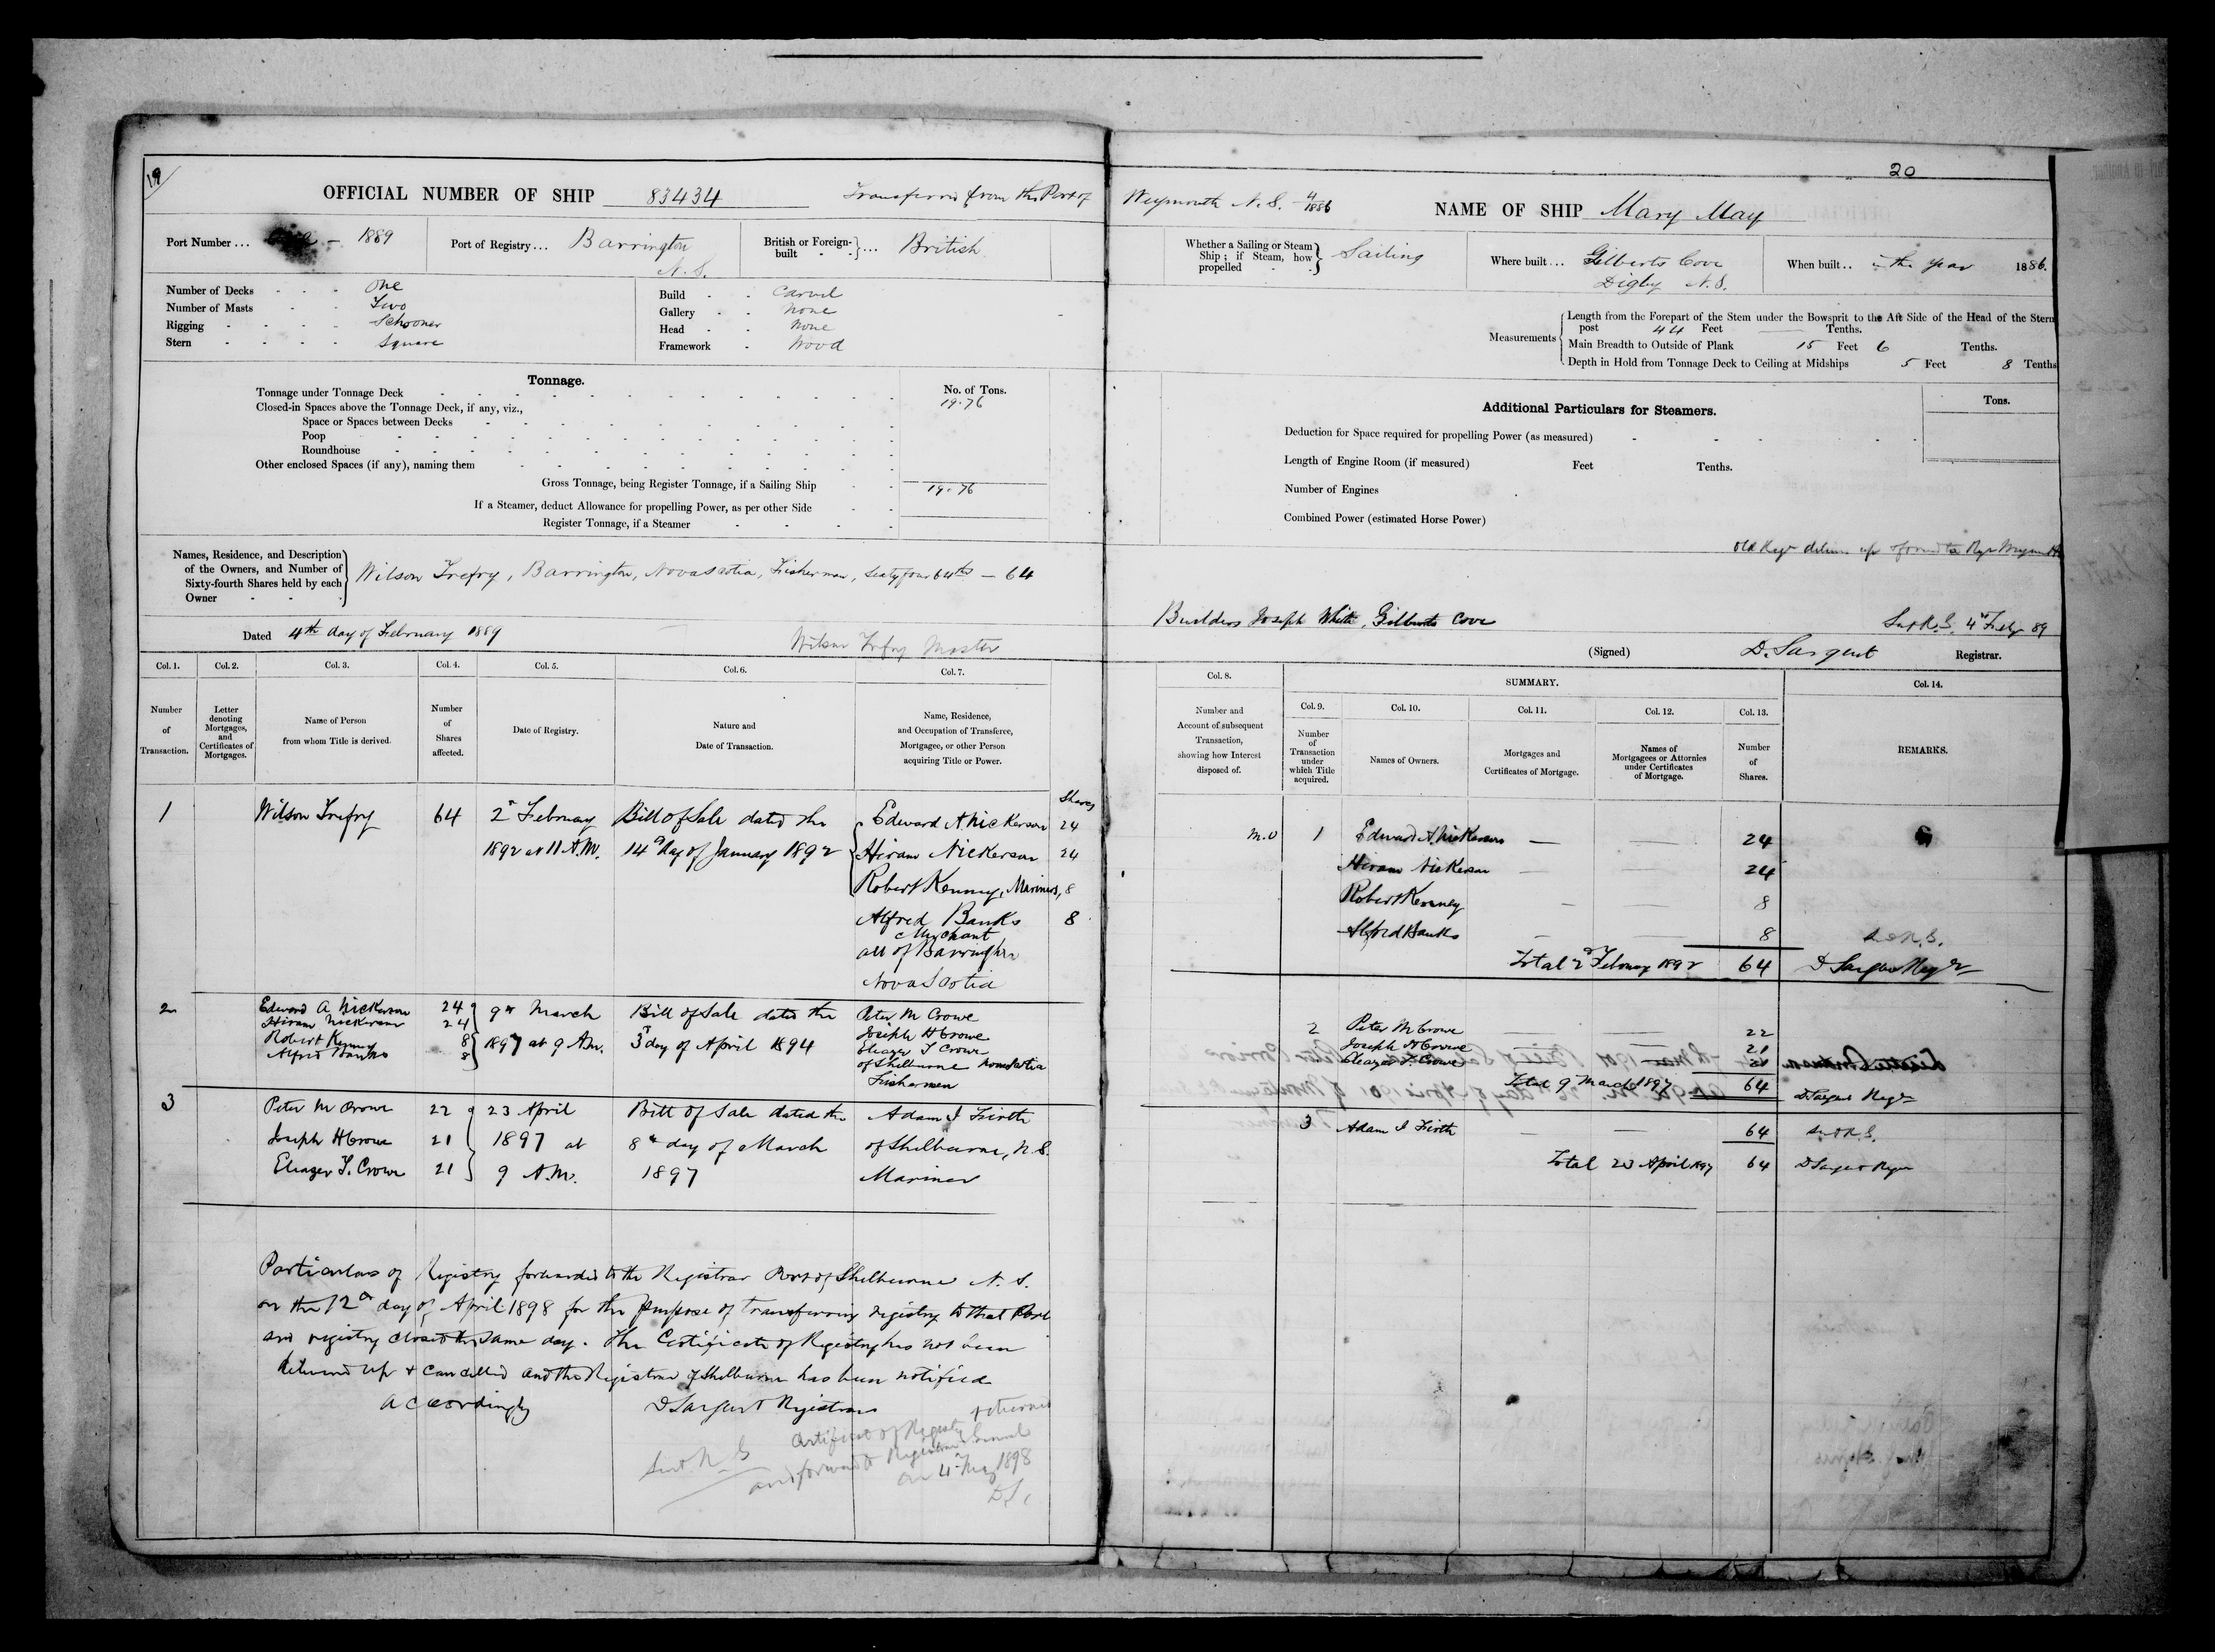 19
OFFICIAL NUMBER OF SHIP 83434 Transferred from the Port of
Port Number ... 1889
Port of Registry ... Barrington
N.S.
British or Foreign-
built } ... British
Number of Decks One
Number of Masts Two
Rigging Schooner
Stern Square
Build Carvel
Gallery None
Head None
Framework Wood
Tonnage.
No. of Tons.
Tonnage under Tonnage Deck 19.76
Closed-in Spaces above the Tonnage Deck, if any, viz.,
Space or Spaces between Decks
Poop
Roundhouse
Other enclosed Spaces (if any), naming them
Gross Tonnage, being Register Tonnage, if a Sailing Ship 19.76
If a Steamer, deduct Allowance for propelling Power, as per other Side
Register Tonnage, if a Steamer
Names, Residence, and Description
of the Owners, and Number of
Sixty-fourth Shares held by each
Owner
Wilson Trefry, Barrington, Nova Scotia, Fisherman, sixty four 64ths — 64
Dated 4th day of February 1889
Wilson Trefry Master
Col. 1. Col. 2. Col. 3. Col. 4. Col. 5. Col. 6. Col. 7.
Number
of
Transaction.
Letter
denoting
Mortgages,
and
Certificates of
Mortgages.
Name of Person
from whom Title is derived.
Number
of
Shares
affected.
Date of Registry.
Nature and
Date of Transaction.
Name, Residence,
and Occupation of Transferee,
Mortgagee, or other Person
acquiring Title or Power.
Shares
1 Wilson Trefry 64 2nd February Bill of Sale dated the Edward A Nickerson 24
1892 at 11 A.M. 14th day of January 1892 Hiram Nickerson 24
Robert Kenney, Mariners, 8
Alfred Banks 8
Merchant
all of Barrington
Nova Scotia
2 Edward A Nickerson 24 9th March Bill of Sale dated the Peter M Crowe
Hiram Nickerson 24 Joseph H Crowe
Robert Kenney 8 1897 at 9 A.M. 3rd day of April 1894 Eleazer T Crowe
Alfred Banks 8 of Shelburne Nova Scotia
Fishermen
3 Peter M Crowe 22 23 April Bill of Sale dated the Adam I Firth
Joseph H Crowe 21 1897 at 8th day of March of Shelburne, N.S.
Eleazer T. Crowe 21 9 A.M. 1897 Mariner
Particulars of Registry forwarded to the Registrar Port of Shelburne N.S.
on the 12th day of April 1898 for the purpose of transferring registry to that Port
and registry closed the same day. The Certificate of Registry has not been
delivered up & cancelled and the Registrar of Shelburne has been notified
accordingly D Sargent Registrar
returned
Certificate of Registry
Sent R. G
and forwarded Registrar General
on 4th May 1898
D.S.
20
Weymouth N.S. 4/1886
NAME OF SHIP Mary May
Whether a Sailing or Steam
Ship; if Steam, how
propelled } Sailing
Where built ... Gilberts Cove
Digby N.S.
When built .. in the year 1886.
Measurements
Length from the Forepart of the Stem under the Bowsprit to the Aft Side of the Head of the Stern
post 44 Feet Tenths.
Main Breadth to Outside of Plank 15 Feet 6 Tenths.
Depth in Hold from Tonnage Deck to Ceiling at Midships 5 Feet 8 Tenths
Additional Particulars for Steamers.
Tons.
Deduction for Space required for propelling Power (as measured)
Length of Engine Room (if measured) Feet Tenths.
Number of Engines
Combined Power (estimated Horse Power)
Builders Joseph White, Gilberts Cove
Sent R.G. 4th Feby 89
(Signed) D. Sargent Registrar.
Col. 8. SUMMARY. Col. 14.
Col. 9. Col. 10. Col. 11. Col. 12. Col. 13.
Number and
Account of subsequent
Transaction,
showing how Interest
disposed of.
Number
of
Transaction
under
which Title
acquired.
Names of Owners.
Mortgages and
Certificates of Mortgage.
Names of
Mortgagees or Attornies
under Certificates
of Mortgage.
Number
of
Shares.
REMARKS.
1 Edward A. Nickerson — — 24
Hiram Nickerson — — 24
Robert Kenney — — 8
Alfred Banks — — 8
Total 2nd February 1892 64 D Sargent Regr
2 Peter M Crowe 22
Joseph H Crowe 21
Eleazer T. Crowe 21
Total 9th March 1897 64 D Sargent Regr
3 Adam I Firth — — 64 Sent R.G.
Total 23 April 1897 64 D Sargent Regr